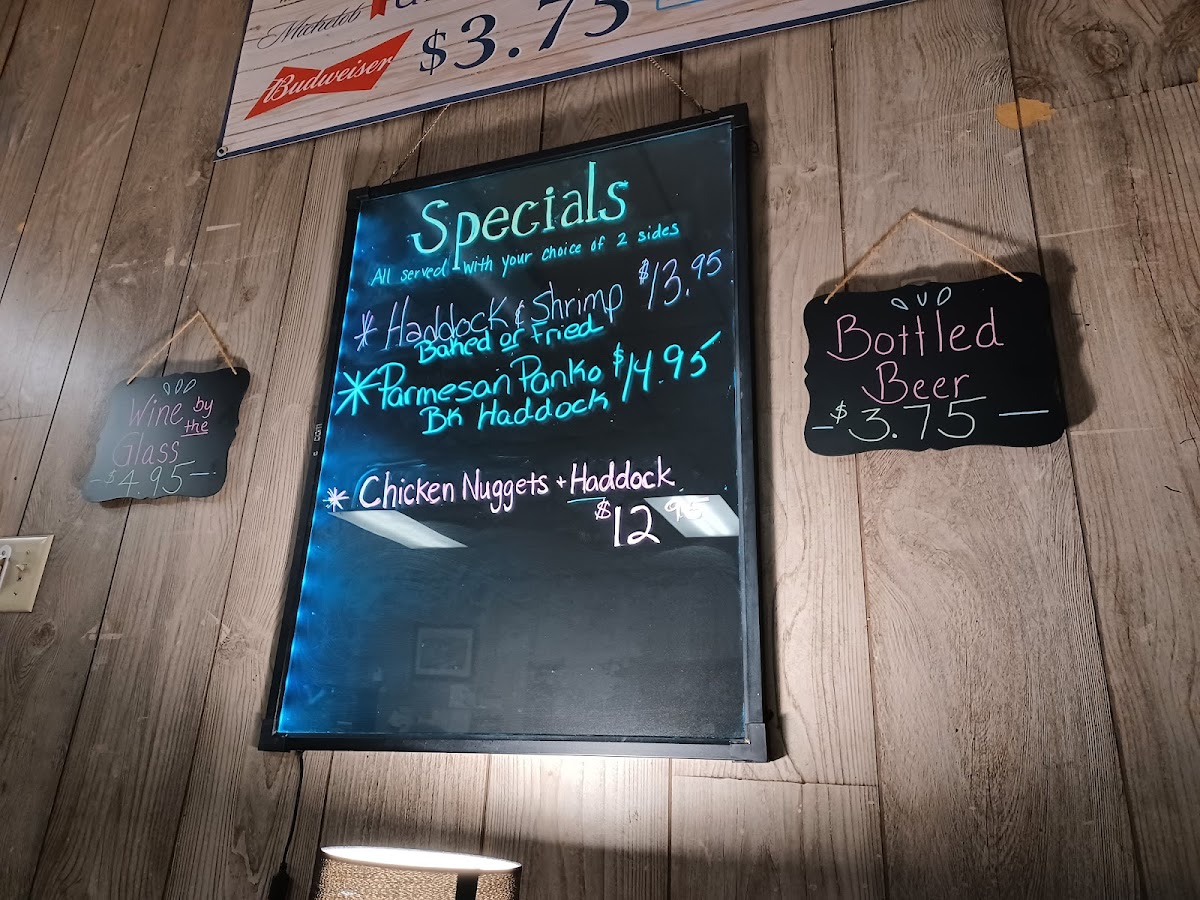 Michelob
Budweiser
$3.75
Specials
All served with your choice of 2 sides
* Haddock & Shrimp $13.95
Baked or Fried
* Parmesan Panko $14.95
BK Haddock
* Chicken Nuggets + Haddock
$12.95
Wine by
the
Glass
- $4.95 -
Bottled
Beer
- $3.75 -